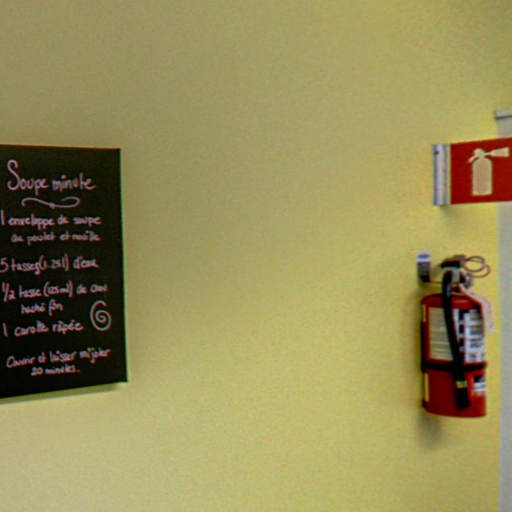 Soupe minute
1 enveloppe de soupe
au poulet et nouille
5 tasses (1.25 l) d'eau
1/2 tasse (125 ml) de chou
haché fin
1 carotte râpée
Couvrir et laisser mijoter
20 minutes.